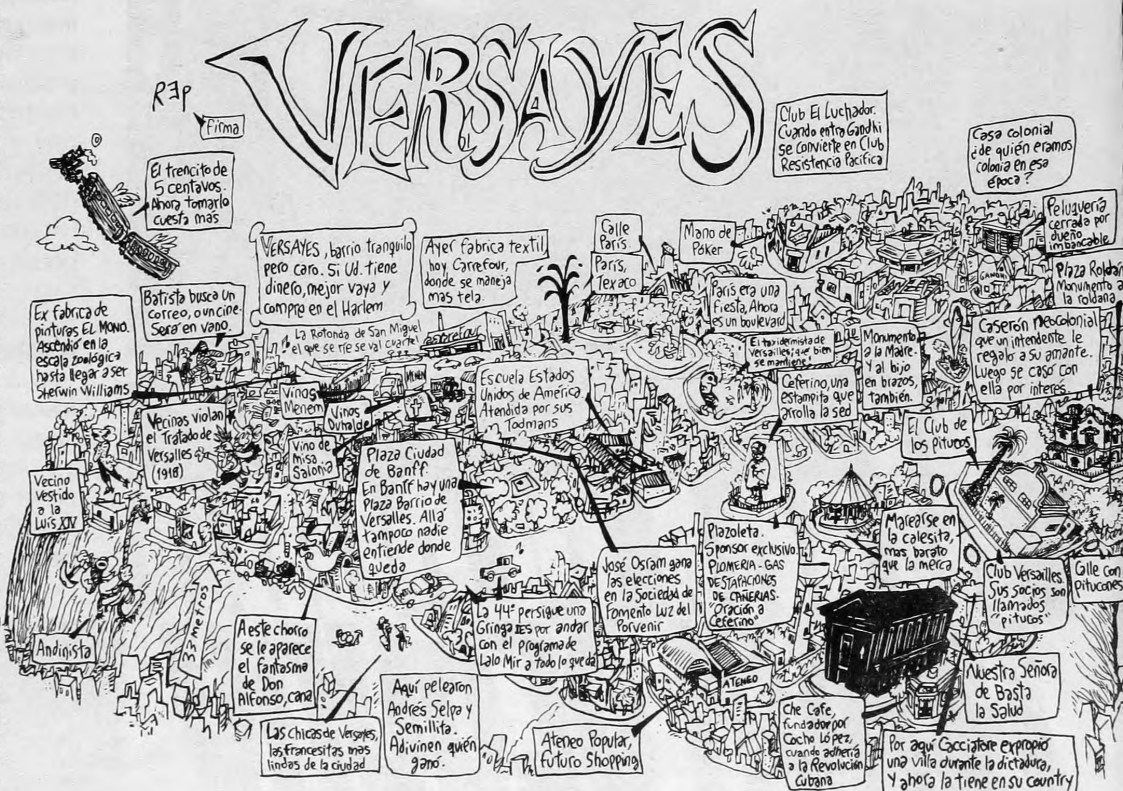 VERSAYES
REP
Firma
El trencito de
5 centavos.
Ahora tomarlo
cuesta mas
Club El Luchador.
Cuando entra Gandhi
se convierte en Club
Resistencia Pacifica
Casa colonial
¿de quién eramos
colonia en esa
época?
Peluquería
cerrada por
dueño
imbancable
VERSAYES, barrio tranquilo
pero caro. Si Ud. tiene
dinero, mejor vaya y
compre en el Harlem
Ayer fabrica textil
hoy Carrefour,
donde se maneja
mas tela.
Calle
París
París,
Texaco
Mano de
Póker
París era una
Fiesta, Ahora
es un boulevard
Plaza Roldán
Monumento a
la roldana
Ex fabrica de
pinturas EL MONO.
Ascendió en la
escala zoológica
hasta llegar a ser
Sherwin Williams
Batista busca un
correo, o un cine.
Será en vano.
La Rotonda de San Miguel
el que se ríe se va al cuartel
Carrefour
El taxidermista de
Versailles ¡que bien
se mantiene!
Monumento
a la Madre.
Y al hijo
en brazos,
también.
Caserón neocolonial
que un intendente le
regalo a su amante.
Luego se caso con
ella por interés
GANDHI
MENEM
Vinos
Menem
Vinos
Duhalde
Vino de
misa
Salonia
Escuela Estados
Unidos de America
Atendida por sus
Todmans
Ceferino, una
estampita que
arrolla la sed
El Club de
los pitucos
Vecinas violan
el Tratado de
Versalles
(1918)
Vecino
vestido
a la
Luis XIV
Plaza Ciudad
de Banff.
En Banff hay una
Plaza Barrio de
Versalles. Allá
tampoco nadie
entiende donde
queda
Plazoleta.
Sponsor exclusivo.
PLOMERIA-GAS
DESTAPACIONES
DE CAÑERIAS.
"Oración a
Ceferino"
Marearse en
la calesita,
mas barato
que la merca
Club Versailles
Sus socios son
llamados
"pitucos"
Calle con
pitucones
33 metros
Andinista
A este chorro
se le aparece
el fantasma
de Don
Alfonso, cana
La 44ª persigue una
Gringa IES por andar
con el programa de
Lalo Mir a todo lo que da
José Osram gana
las elecciones
en la Sociedad de
Fomento Luz del
Porvenir
Las chicas de Versayes,
las francesitas mas
lindas de la ciudad
Aquí pelearon
Andrés Selpa y
Semillita.
Adivinen quién
ganó.
ATENEO
Ateneo Popular,
futuro Shopping
Che Cafe,
fundador por
Cocho López,
cuando adhería
a la Revolución
Cubana
Nuestra Señora
de Basta
la Salud
Por aquí Cacciatore expropio
una villa durante la dictadura,
y ahora la tiene en su country